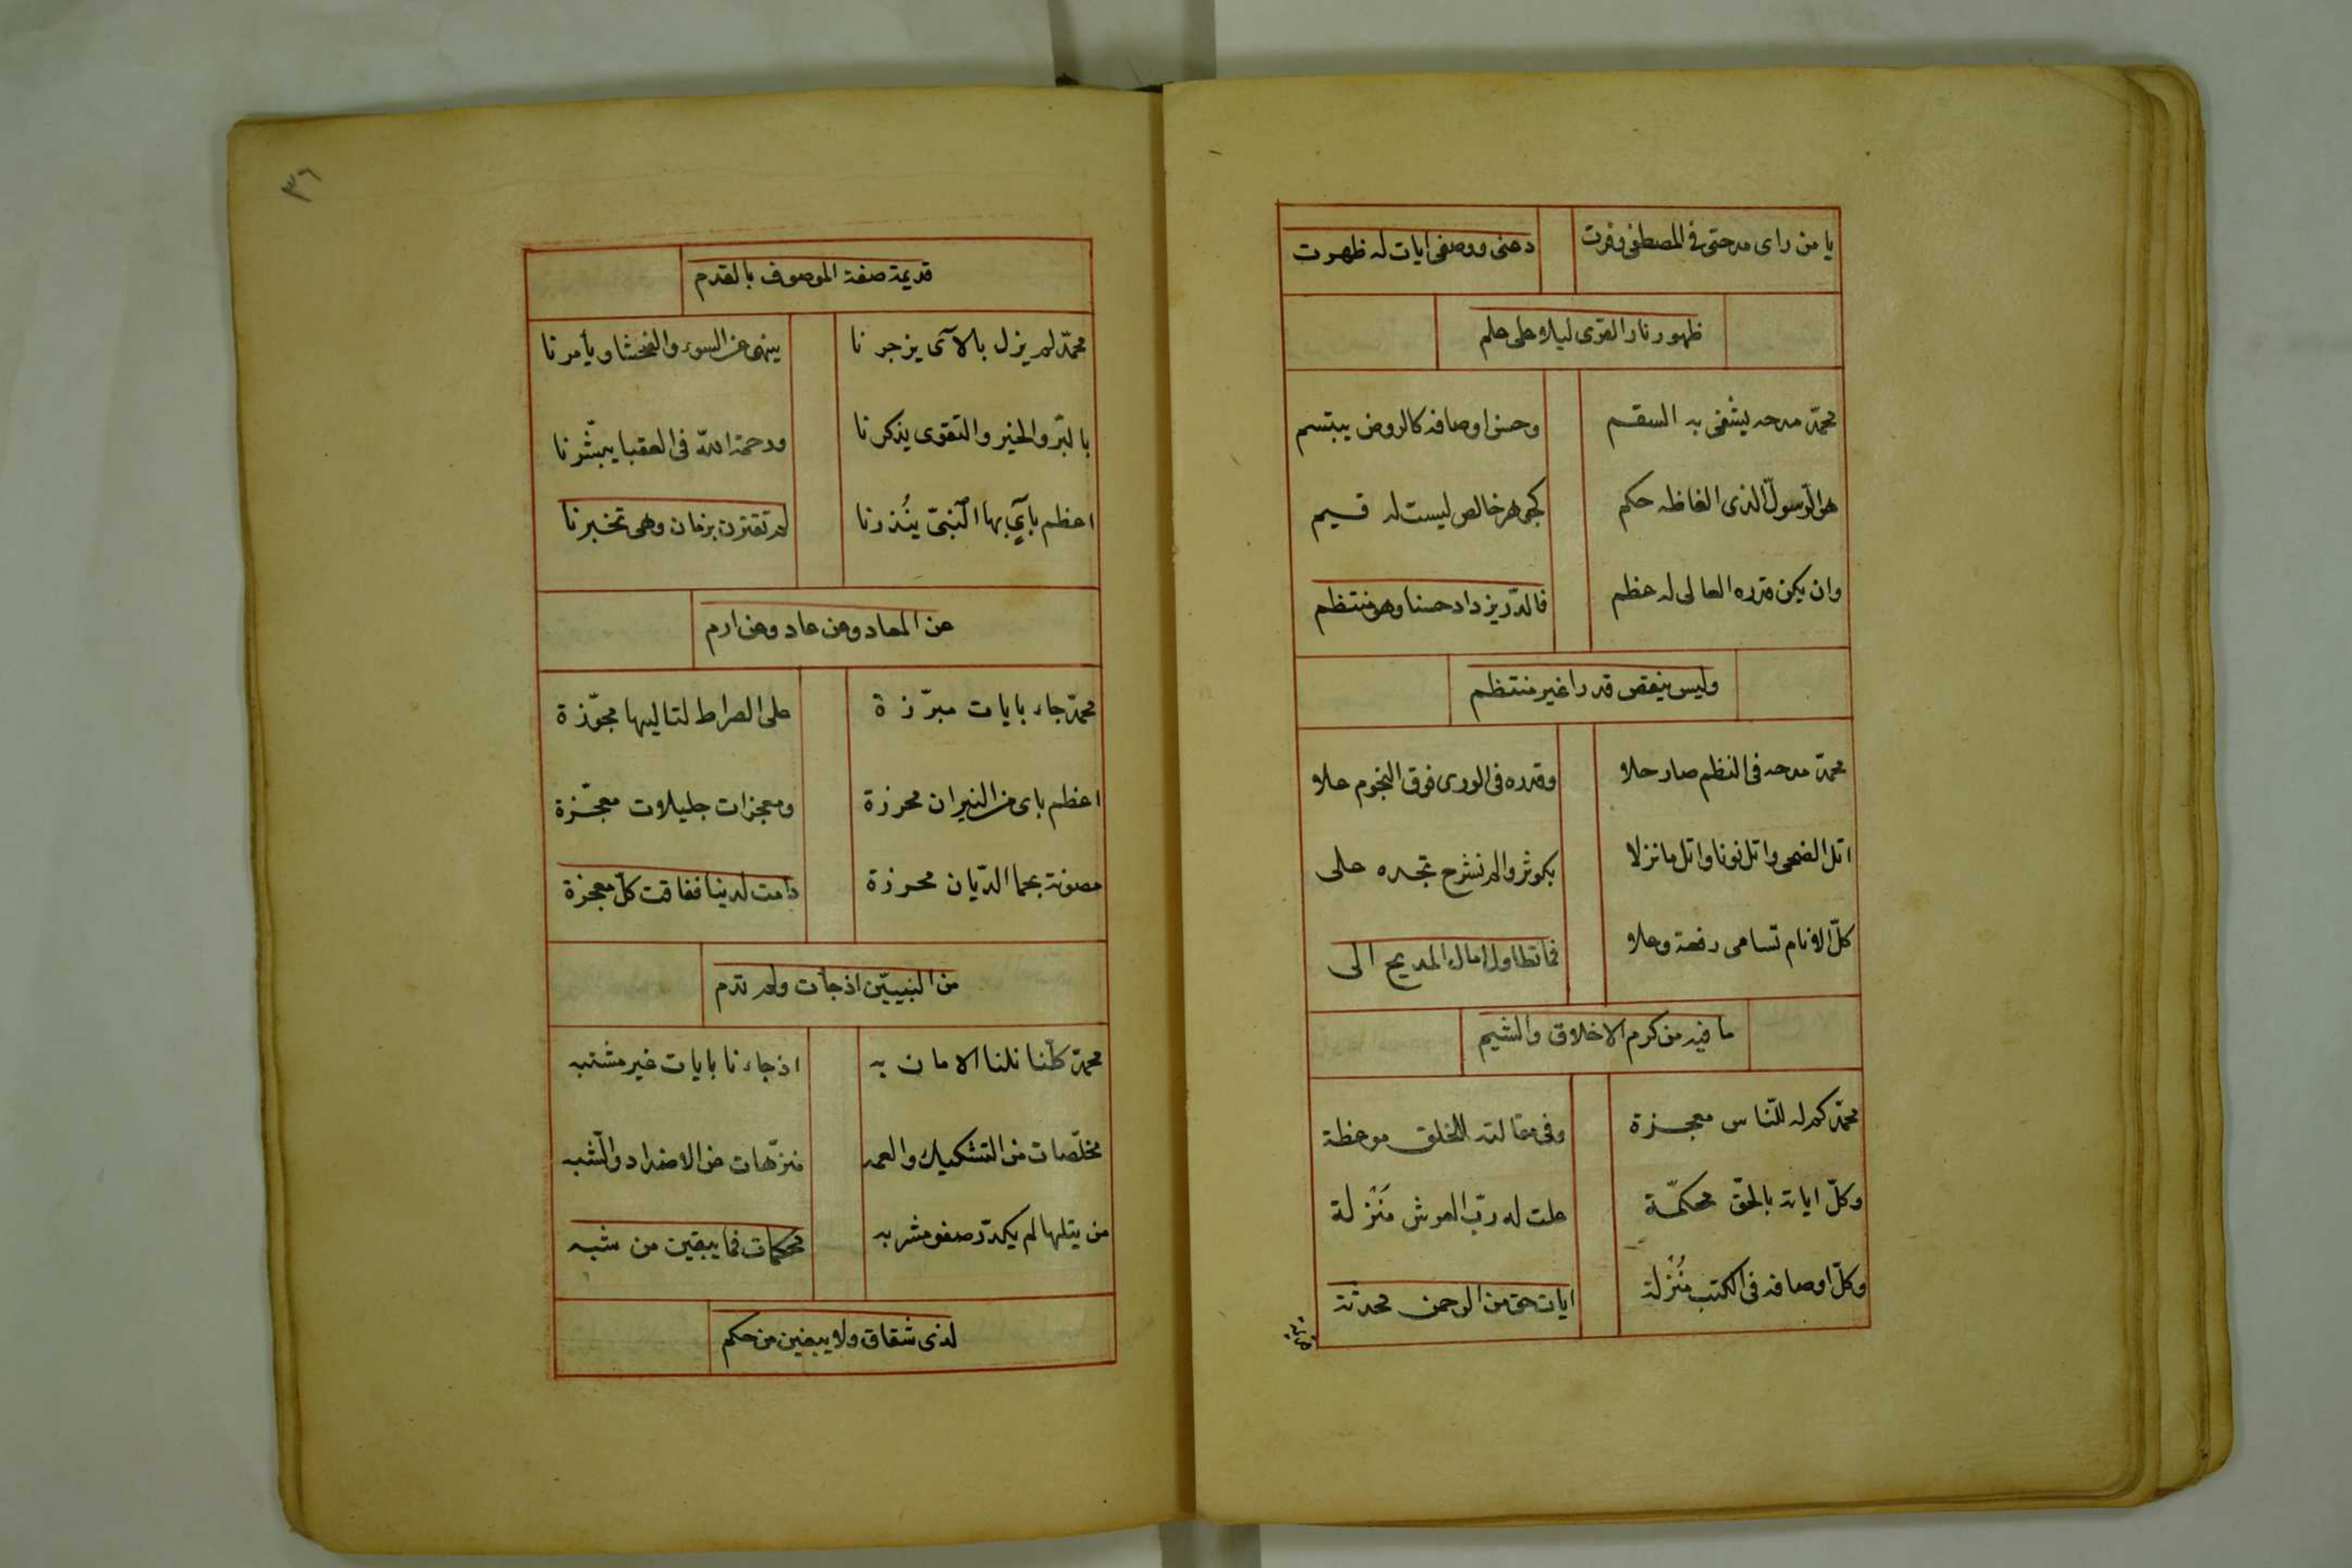 يا من راى مدحتى فى المصطفى وفرت
دعنى ووصفى ايات له ظهرت
ظهور نار القرى ليلا على علم
محمّد مدحه يشفى به السقم
وحسن اوصافه كالروض يبتسم
هو الرّسول الذى الفاظه حكم
كجوهر خالص ليست له قسيم
وان يكن قدره العالى له عظم
فالدّر يزداد حسنا وهو منتظم
وليس ينقص قدرا غير منتظم
محمّد مدحه فى النظم صار حلا
وقدره فى الورى فوق النجوم علا
اتل الضحى واتل نونا واتل ما نزلا
بكوثر والم نشرح تجده على
كلّ الانام تسامى رفعة وعلا
فما تطاول امال المديح الى
ما فيه من كرم الاخلاق والشيم
محمّد كم له للنّاس معجزة
وفى مقالته للخلق موعظة
وكلّ اياته بالحقّ محكمّة
علت له ربّ العرش مَنْزلة
وكلّ اوصافه فى الكتب مُنْزلة
ايات حق من الرحمن محدثة
قديمة
٣٦
قديمة صفة الموصوف بالقدم
محمّد لم يزل بالآى يزجرنا
ينهى عن السوء والفحشا ويأمرنا
بالبرّ والخير والتقوى يذكرنا
ورحمة اللّه فى العقبا يبشّرنا
اعظم بآيٍ بها النّبىّ ينُذرنا
لم تقترن بزمان وهى تخبرنا
عن المعاد وعن عاد وعن ارم
محمّد جاء بايات مبرّزة
على الصراط لتاليها مجوّزة
اعظم باى من النيران محرزة
ومعجزات جليلات معجّزة
مصونة بحما الدّيان محرزة
دامت لدينا ففاقت كلّ معجزة
من النبييّن اذ جأت ولم تدم
محمّد كلّنا نلنا الامان به
اذ جاءنا بايات غير مشتبه
مخلّصات من التشكيك والعمه
منزّهات عن الاضداد والشّبه
من يتلها لم يكدّر صفو مشربه
محكمات فما يبقين من شبه
لذى شقاق ولا يبغين من حكم